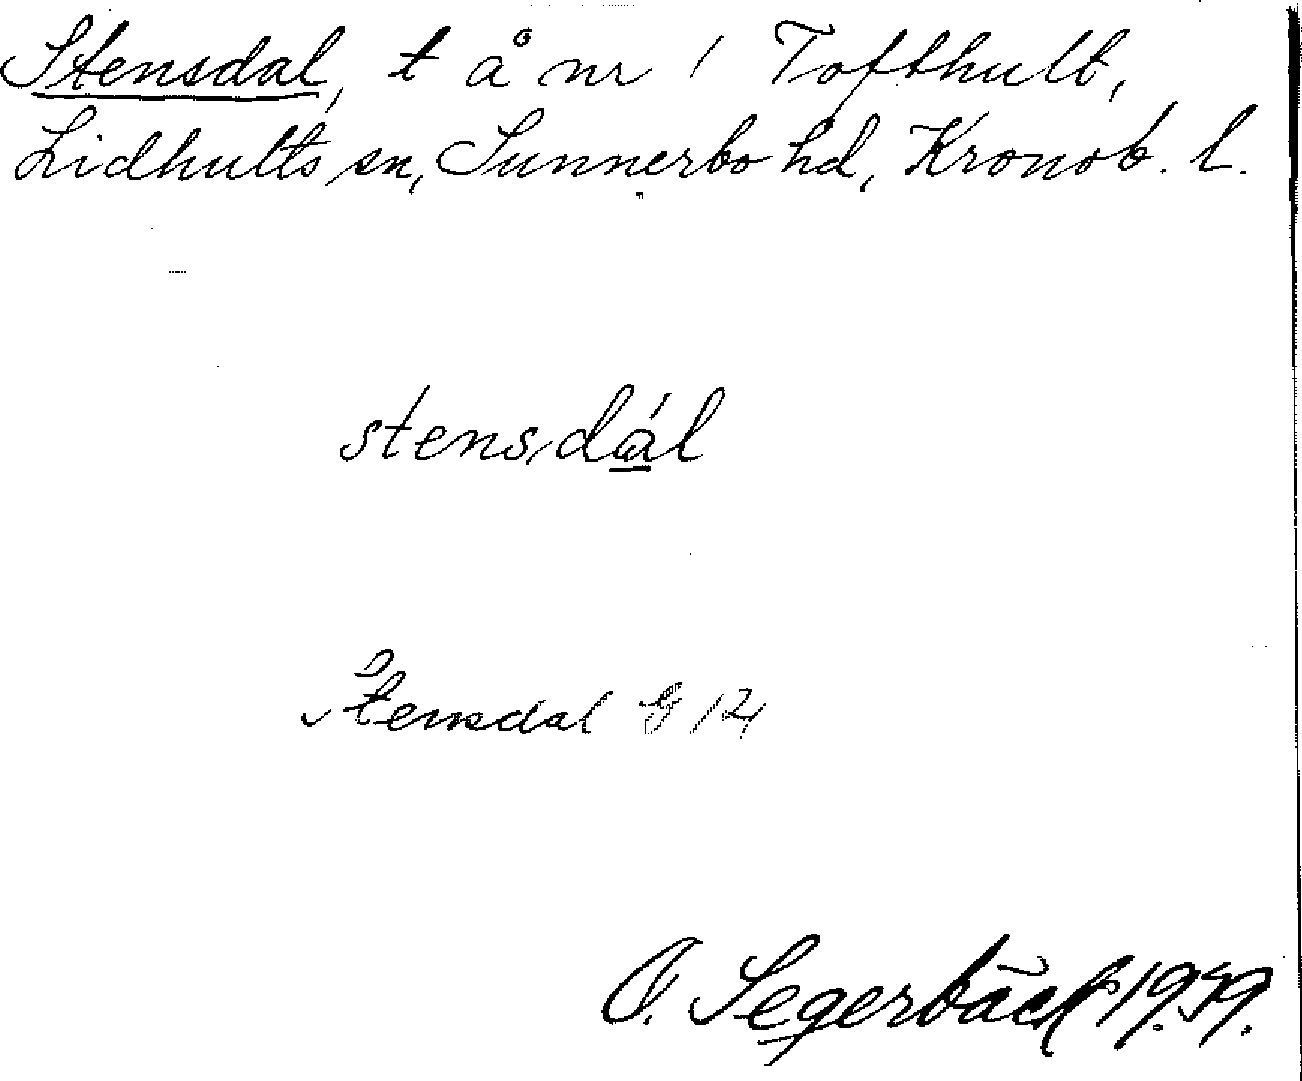 Stensdal, t å nr 1 Tofthult,
Lidhults sn, Sunnerbo hd, Kronob. l.
stensdál
Stensdal G 12
O. Segerbäck 1939.